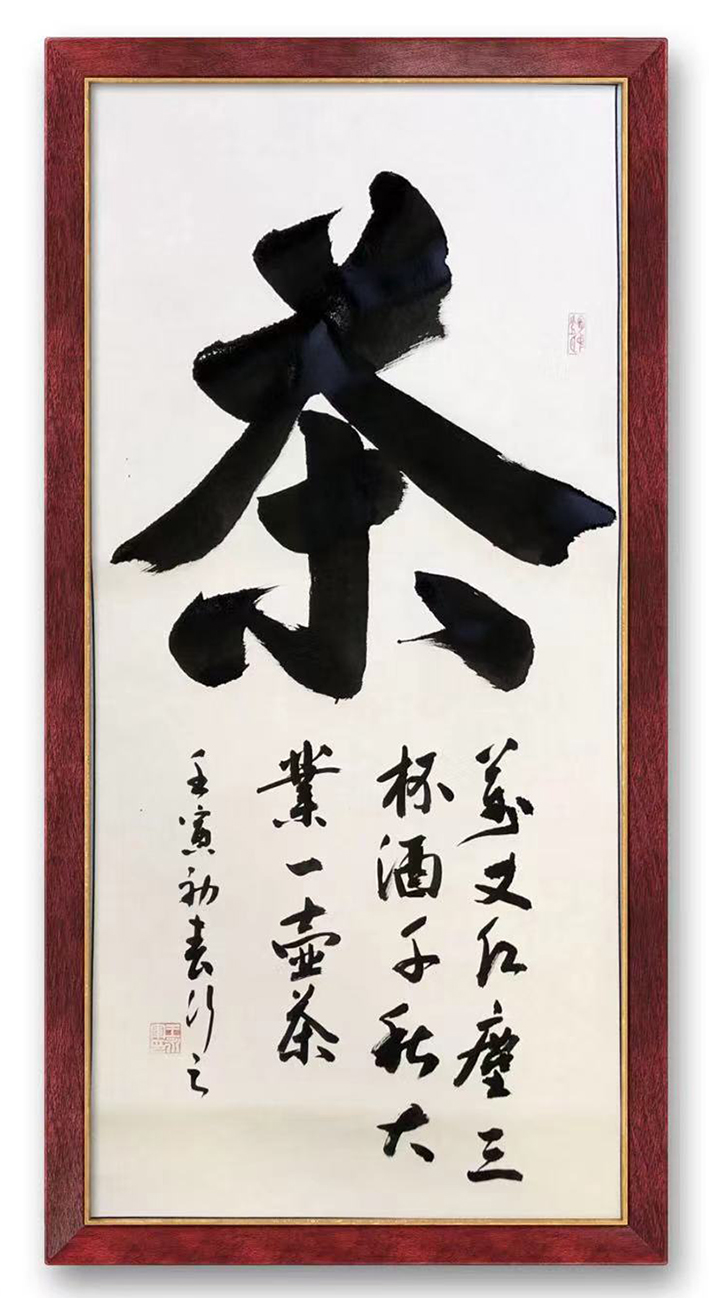 茶
萬丈紅塵三
杯酒千秋大
業一壺茶
壬寅初春行之